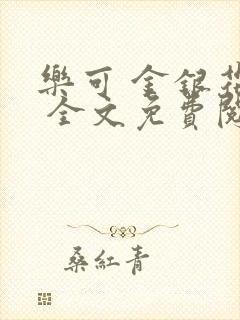 樂可 金銀花
全文免費閱
桑紅青